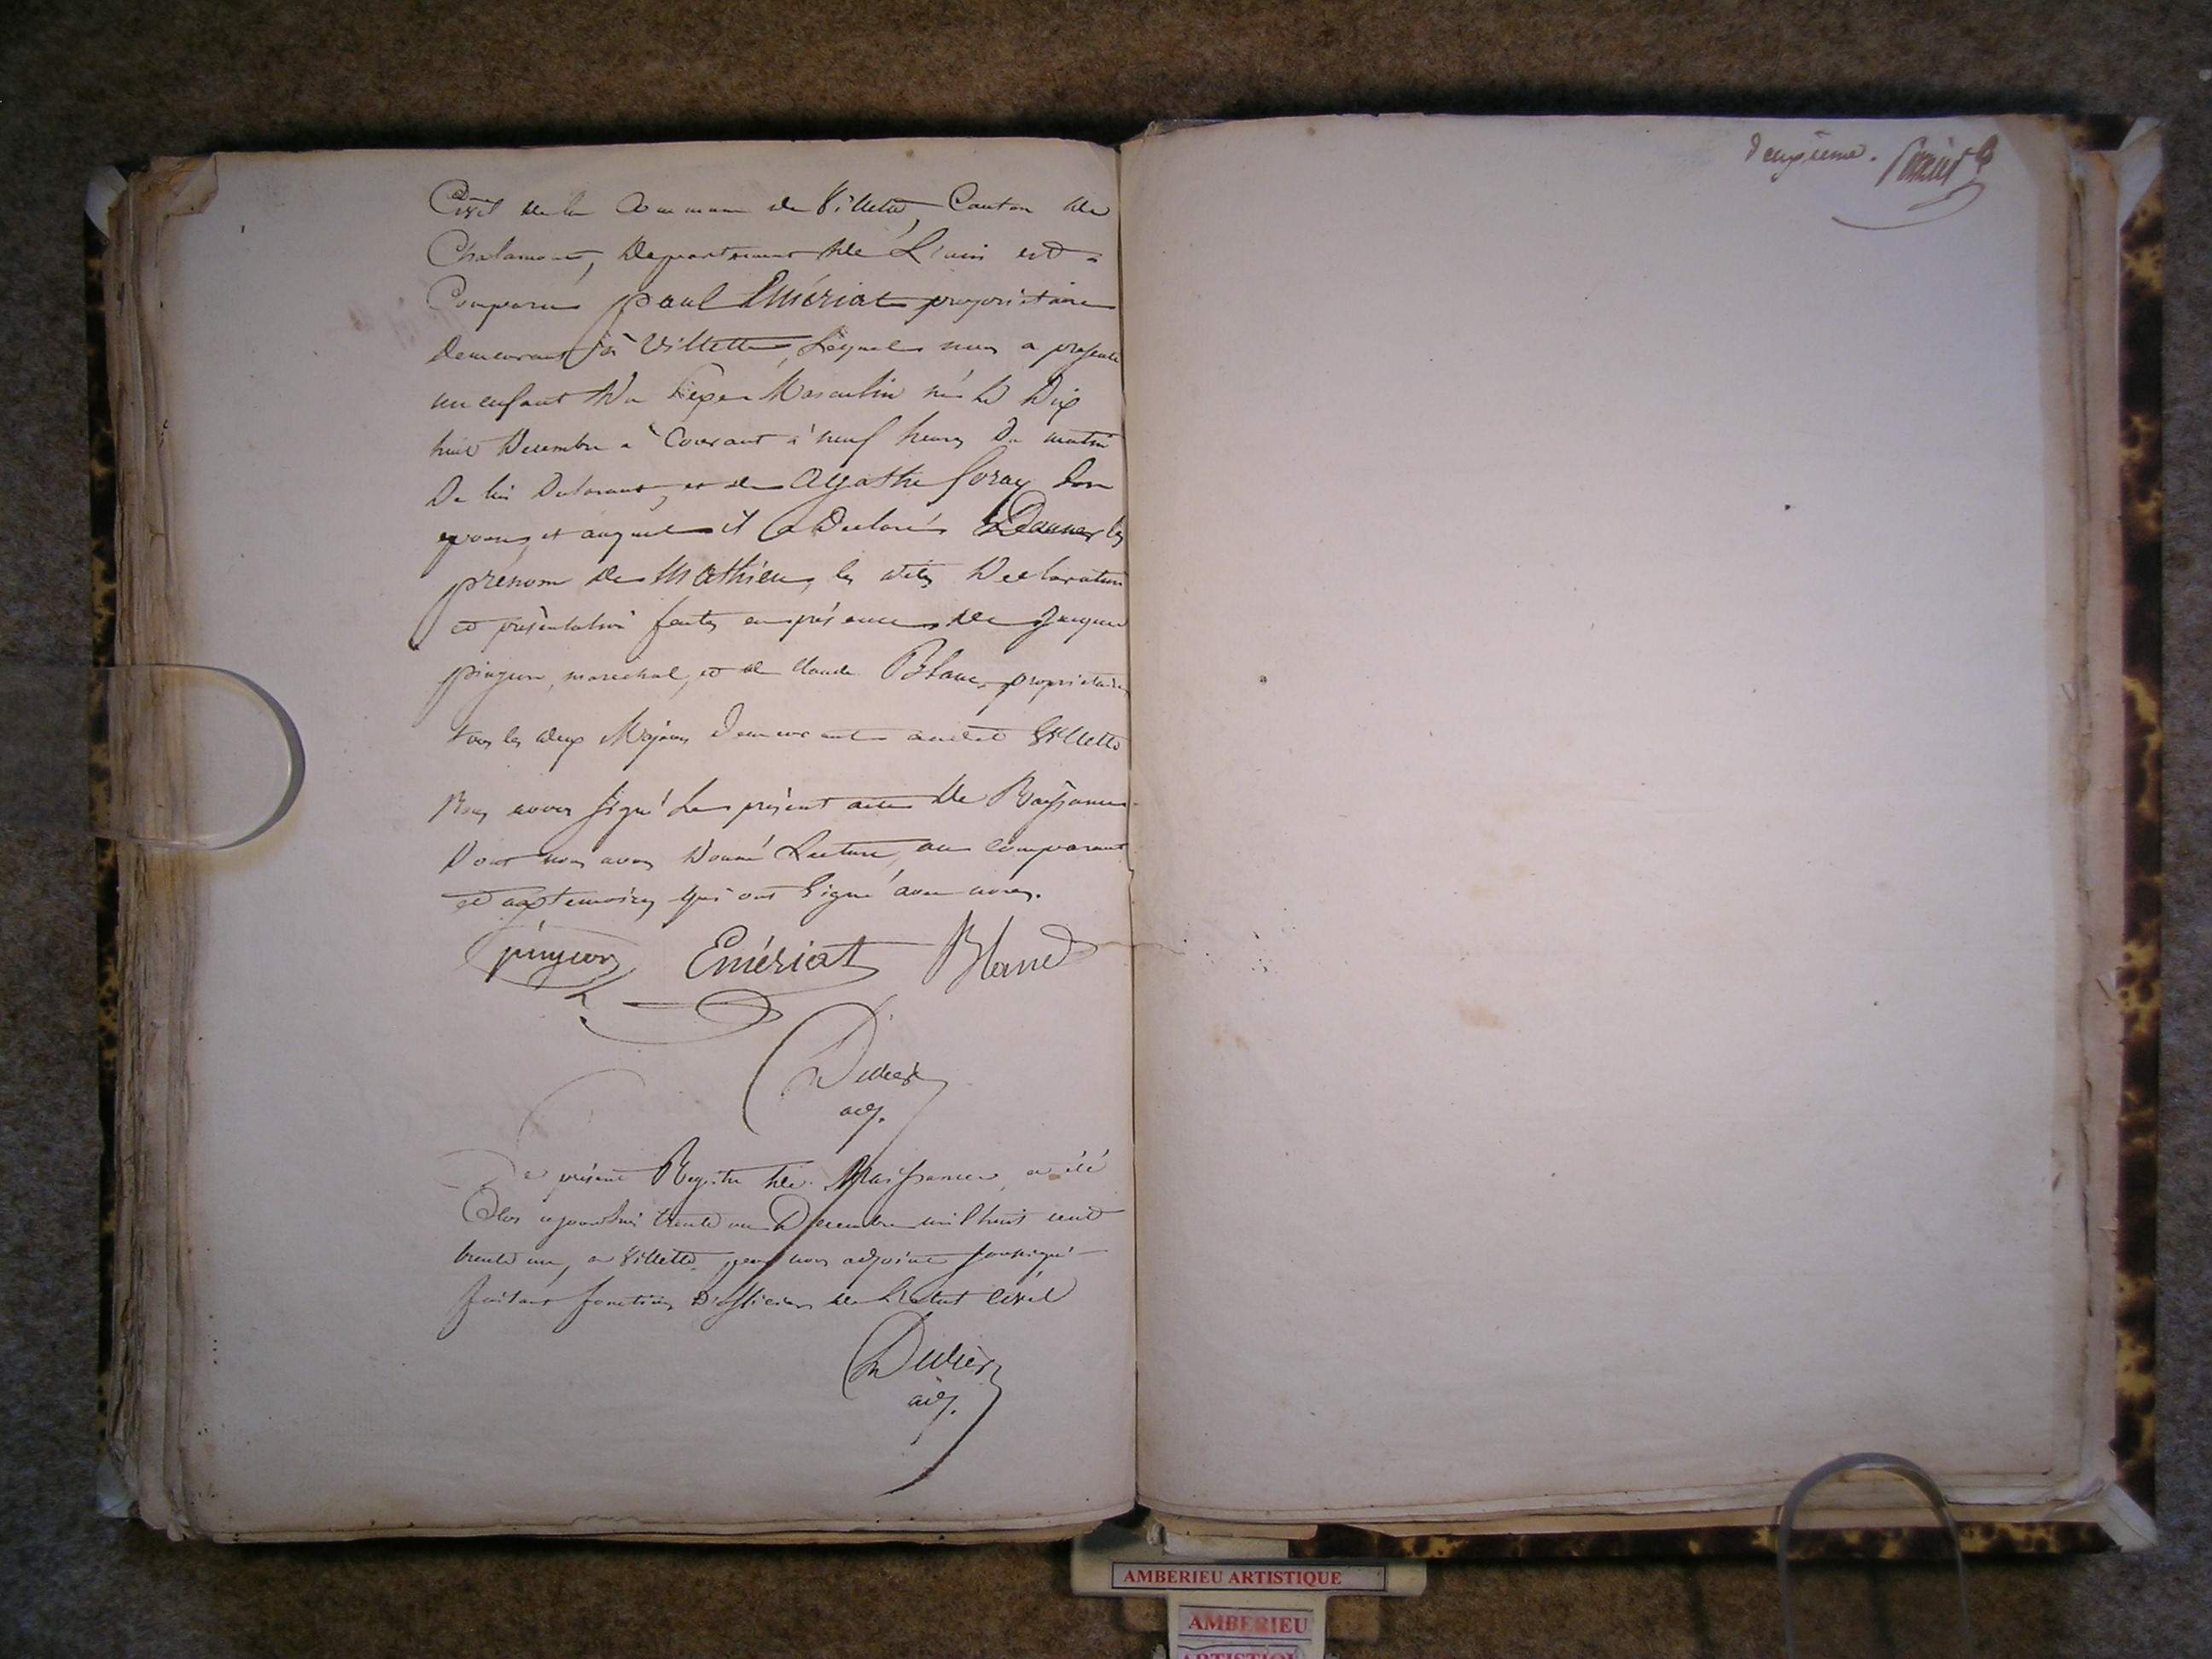 Civil de la Commune de Villette, Canton de
Chalamont, Departement de L'ain est
Comparu paul Emériat propriétaire
demeurant à Villette, Lequel nous a presenté
un enfant du Sexe Masculin né le Dix
huit Decembre Courant à neuf heures du matin
De lui Déclarant, et de Agathe Soray Son
epouse, et auquel il a Déclaré Donner les
prenom de Mathieu, les dites Declaration
et présentation faites en présence de Jacques
pingeon, marechal, et de claude Blanc, propriétaire
tous les deux Majeurs demeurant audit Villette
Nous avons signé Le présent acte de Naissance
Dont nous avons Donné Lecture, au comparant
et aux temoins qui ont Signé avec nous.
pingeon Emériat Blanc
Didier
adj.
Le présent Registre de Naissance a été
Clos aujourdhui trente un Decembre mil huit cent
trente un, a Villette par nous adjoint soussigné
faisant fonction D'officier de L'Etat Civil
Didier
adj.
deuxième.
AMBERIEU ARTISTIQUE
AMBERIEU
ARTISTIQU